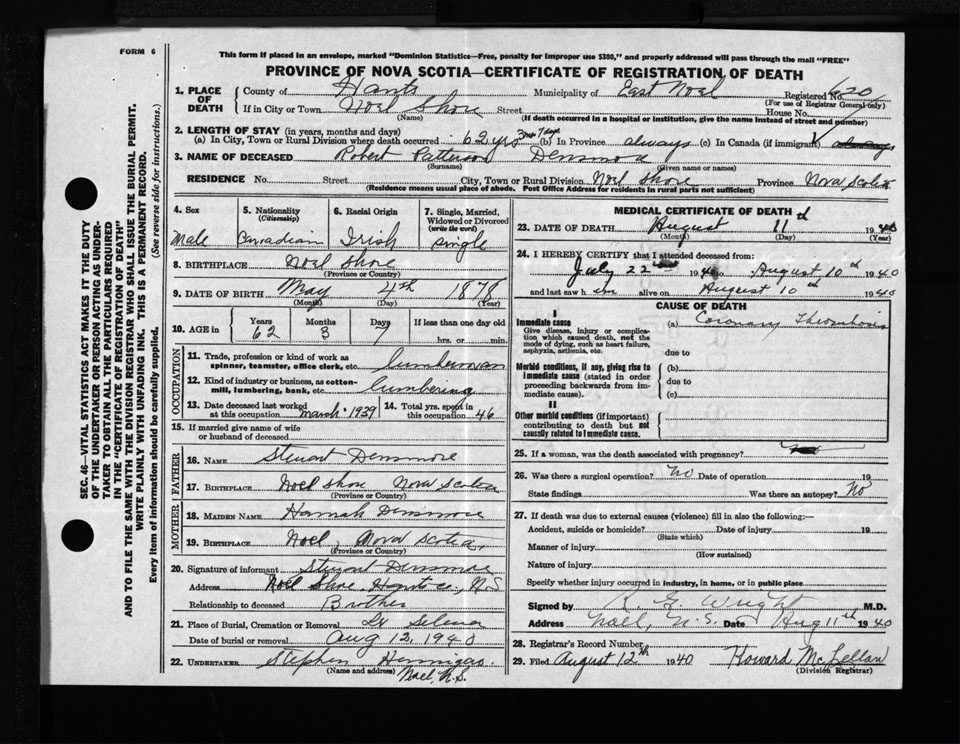 FORM 6
This form if placed in an envelope, marked "Dominion Statistics—Free, penalty for improper use $300," and properly addressed will pass through the mail "FREE"
PROVINCE OF NOVA SCOTIA—CERTIFICATE OF REGISTRATION OF DEATH
1. PLACE OF DEATH County of Hants Municipality of East Noel Registered No. 20
(For use of Registrar General only)
If in City or Town Noel Shore Street House No.
(Name) (If death occurred in a hospital or institution, give the name instead of street and number)
2. LENGTH OF STAY (in years, months and days)
(a) In City, Town or Rural Division where death occurred 62 yrs 3 mos 7 days (b) In Province always (c) In Canada (if immigrant) always
3. NAME OF DECEASED Robert Patterson Densmore
(Surname) (Given name or names)
RESIDENCE No. Street City, Town or Rural Division Noel Shore Province Nova Scotia
(Residence means usual place of abode. Post Office Address for residents in rural parts not sufficient)
4. Sex Male
5. Nationality (Citizenship) Canadian
6. Racial Origin Irish
7. Single, Married, Widowed or Divorced (write the word) Single
8. BIRTHPLACE Noel Shore
(Province or Country)
9. DATE OF BIRTH May 4th 1878
(Month) (Day) (Year)
10. AGE in Years 62 Months 3 Days 7 If less than one day old hrs. or min.
OCCUPATION
11. Trade, profession or kind of work as spinner, teamster, office clerk, etc. Lumberman
12. Kind of industry or business, as cotton-mill, lumbering, bank, etc. Lumbering
13. Date deceased last worked at this occupation March 1939
14. Total yrs. spent in this occupation 46
15. If married give name of wife or husband of deceased
FATHER
16. NAME Stewart Densmore
17. BIRTHPLACE Noel Shore Nova Scotia
(Province or Country)
MOTHER
18. MAIDEN NAME Hannah Densmore
19. BIRTHPLACE Noel, Nova Scotia,
(Province or Country)
20. Signature of informant Stewart Densmore
Address Noel Shore, Hants Co., N.S
Relationship to deceased Brother
21. Place of Burial, Cremation or Removal Lr Selma
Date of burial or removal Aug 12, 1940
22. UNDERTAKER Stephen Hennigar
(Name and address) Noel, N.S.
MEDICAL CERTIFICATE OF DEATH
23. DATE OF DEATH August 11th 1940
(Month) (Day) (Year)
24. I HEREBY CERTIFY that I attended deceased from:
July 22 1940 to August 10th 1940
and last saw him alive on August 10th 1940
CAUSE OF DEATH
I
Immediate cause
Give disease, injury or complication which caused death, not the mode of dying, such as heart failure, asphyxia, astlenia, etc.
(a) Coronary Thrombosis
due to
Morbid conditions, if any, giving rise to immediate cause (stated in order proceeding backwards from immediate cause).
(b)
due to
(c)
II
Other morbid conditions (if important) contributing to death but not causally related to immediate cause.
25. If a woman, was the death associated with pregnancy?
26. Was there a surgical operation? No Date of operation 19
State findings Was there an autopsy? No
27. If death was due to external causes (violence) fill in also the following:—
Accident, suicide or homicide? Date of injury 19
(State which)
Manner of injury
(How sustained)
Nature of injury
Specify whether injury occurred in industry, in home, or in public place
Signed by R. G. Wright M.D.
Address Noel, N.S. Date Aug 11th 1940
28. Registrar's Record Number
29. Filed August 12th 1940 Howard McLellan
(Division Registrar)
SEC. 46—VITAL STATISTICS ACT MAKES IT THE DUTY
OF THE UNDERTAKER OR PERSON ACTING AS UNDER-
TAKER TO OBTAIN ALL THE PARTICULARS REQUIRED
IN THE "CERTIFICATE OF REGISTRATION OF DEATH"
AND TO FILE THE SAME WITH THE DIVISION REGISTRAR WHO SHALL ISSUE THE BURIAL PERMIT.
WRITE PLAINLY WITH UNFADING INK. THIS IS A PERMANENT RECORD.
Every item of information should be carefully supplied. (See reverse side for instructions.)